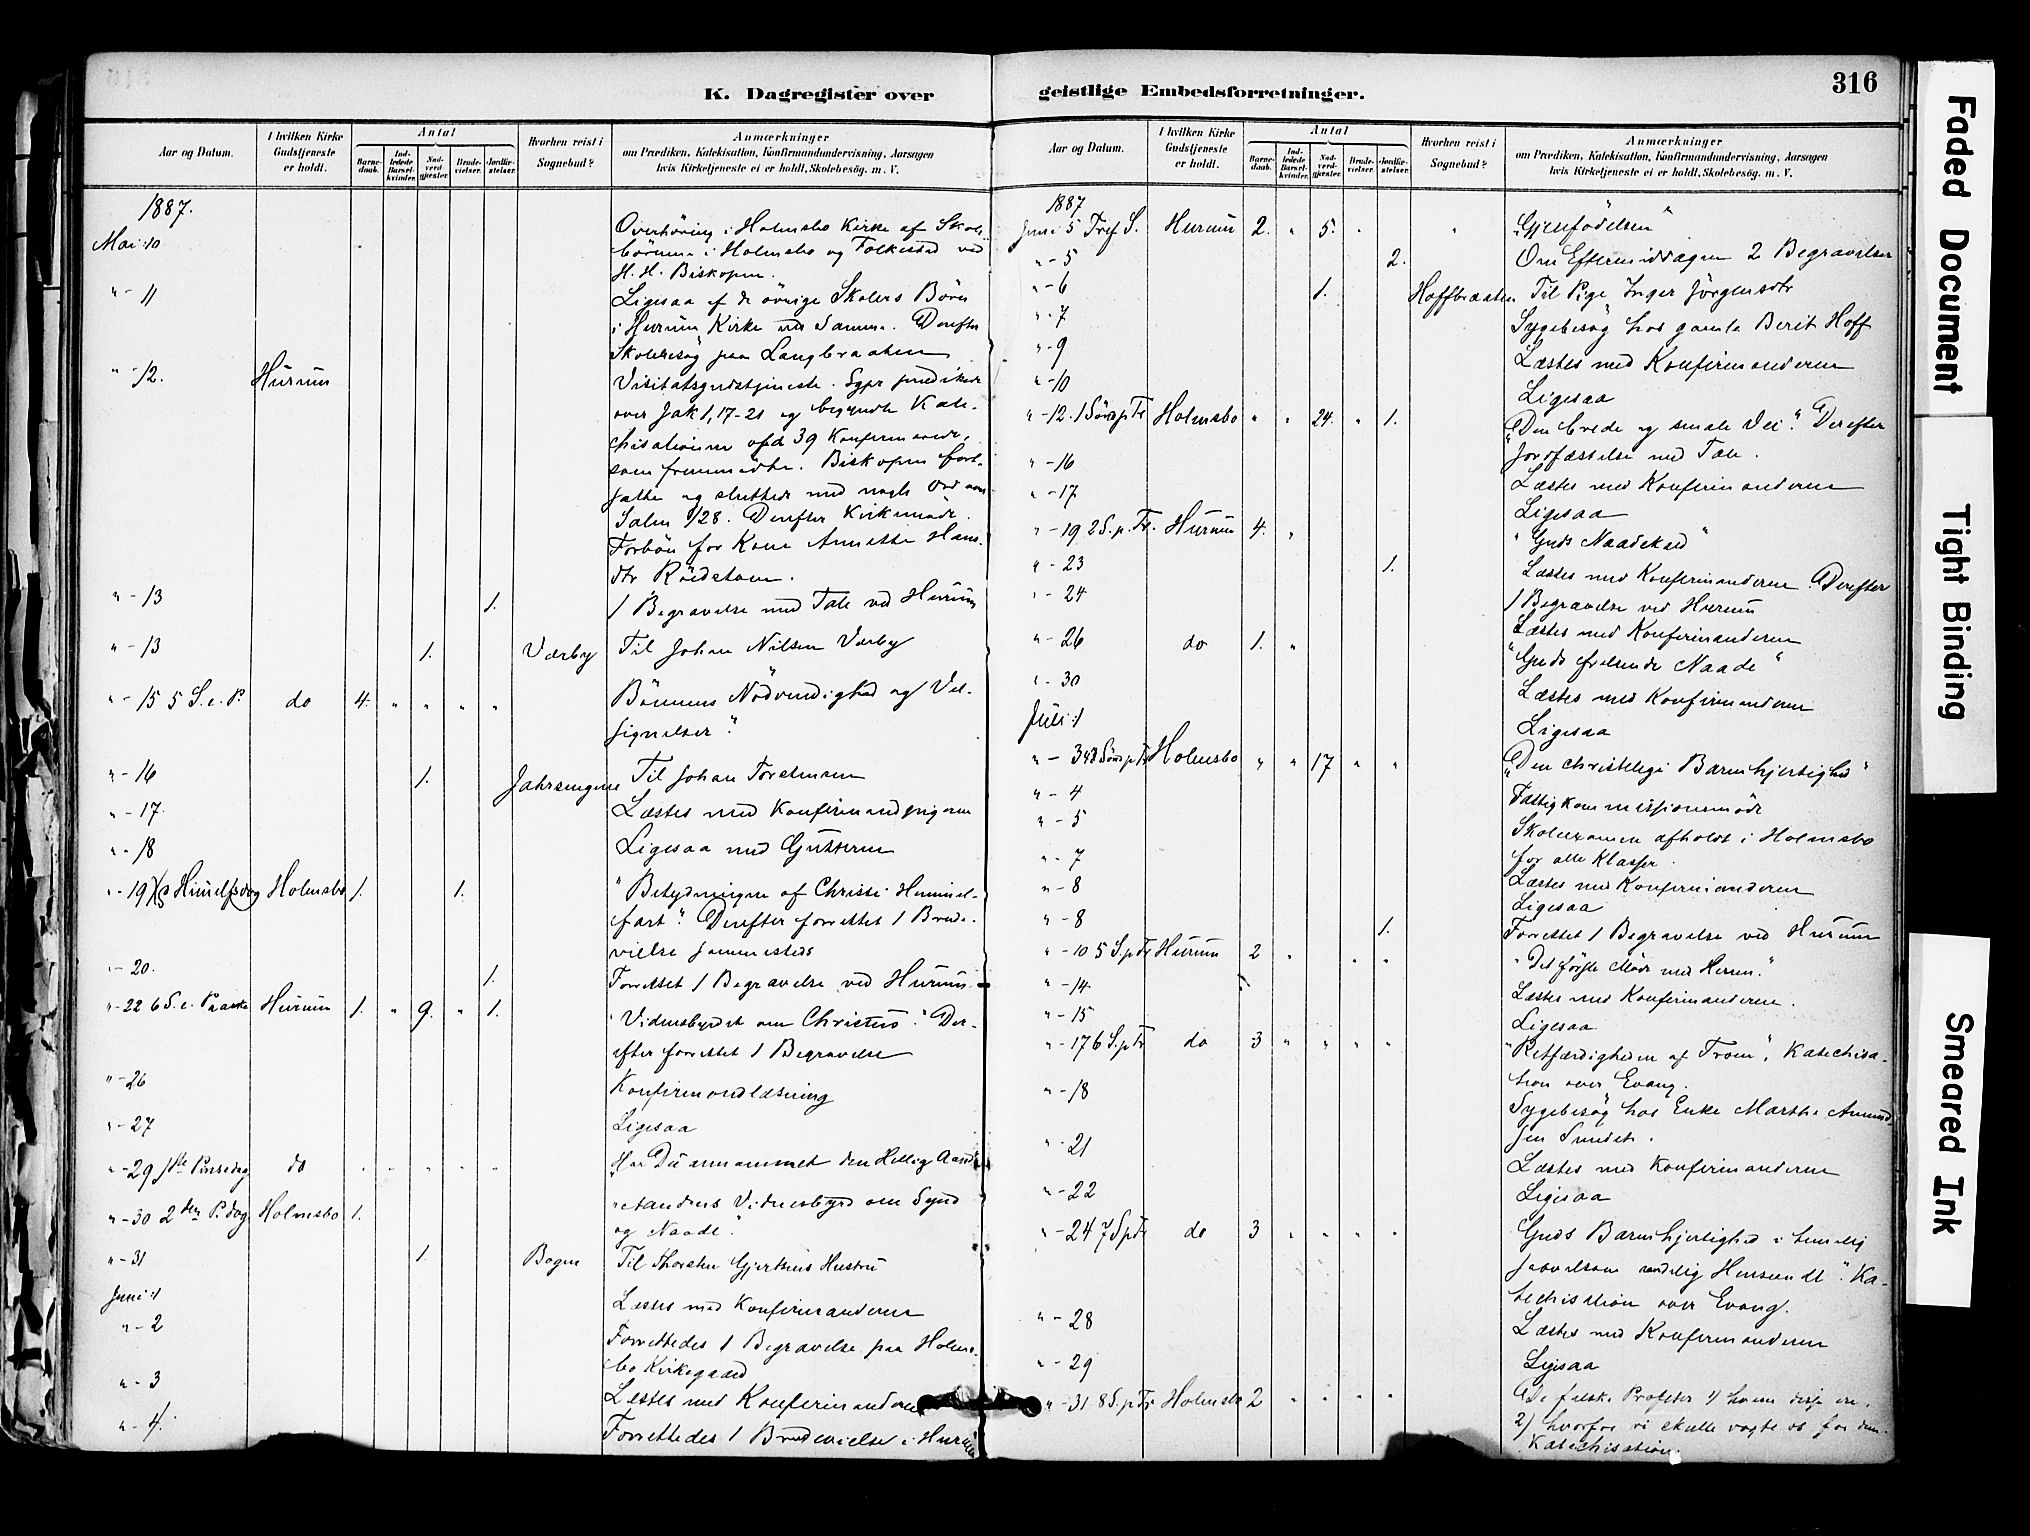 K. Dagregister over
Aar og Datum.
I hvilken Kirke Gudstjeneste er holdt.
Antal
Barne-daab.
Ind-ledede Barsel-kvinder.
Nad-verd-gjester.
Brude-vielser.
Jordfæ-stelser.
Hvorhen reist i Sognebud?
Anmærkninger
om Prædiken, Katekisation, Konfirmandundervisning, Aarsagen
hvis Kirketjeneste ei er holdt, Skolebesög. m. V.
1887.
Mai: 10 Overhöring i Holmsbo Kirke af Skole
börnene i Holmsbo og Folkestad ved
H. H. Biskopen.
" - 11 Ligesaa af de övrige Skolers Börn
i Hurum Kirke ved Samme. Derefter
Skolebesög paa Langbraaten
" - 12. Hurum Visitatsgudstjeneste. Sgpr prædikede
over Jak 1, 17-21 og begyndte Kate-
chisationen 39 Konfirmerede,
som fremmødte. Biskopen fort-
satte og sluttede med nogle Ord over
Salm 128. Derefter Kirkemöde.
Forbön for Kone Annette Hans-
dtr Rödstom.
" - 13 1. 1 Begravelse med Tale ved Hurum
" - 13 1. Værby Til Johan Nilsen Værby
" - 15 5 S. e. P. do 4. " " " " Bönnens Nödvendighed og Vel-
signelser".
" - 16 1. Til Johan Torstensen
" - 17. Læstes med Konfirmandpigerne
" - 18 Ligesaa med Gutterne
" - 19 Holmsbo 1. 1. "Betydningen af Christi Himmel-
fart". Derefter forrettet 1 Brude-
vielse sammesteds
" - 20. 1. Forrettet 1 Begravelse ved Hurum
" - 22 6 S. e. Paaske Hurum 1. " 9. " 1. "Vidnesbyrdet om Christus". Der-
efter forrettet 1 Begravelse
" - 26 Konfirmandlæsning
" - 27 Ligesaa
" - 29 1ste Pinsedag do " " " " " "Har Du annammet den Hellig Aand
" - 30 2den P. dag Holmsbo 1. "Aandens Vidnesbyrd om Synd
og Naade".
" - 31 1. Bogen Til Thorsten Gjertsens Hustru
Juni: 1 Læstes med Konfirmanderne
" - 2 Forrettedes 1 Begravelse paa Holms-
bo Kirkegaard
" - 3 Læstes med Konfirmanderne
" - 4. Forrettedes 1 Brudevielse i Hurum
geistlige Embedsforretninger.
316
Aar og Datum.
I hvilken Kirke Gudstjeneste er holdt.
Antal
Barne-daab.
Ind-ledede Barsel-kvinder.
Nad-verd-gjester.
Brude-vielser.
Jordfæ-stelser.
Hvorhen reist i Sognebud?
Anmærkninger
om Prædiken, Katekisation, Konfirmandundervisning, Aarsagen
hvis Kirketjeneste ei er holdt, Skolebesög. m. V.
1887
Juni 5 Tref S. Hurum 2. " 5. " " "Gjenfödelsen"
" - 5 2. Om Eftermiddagen 2 Begravelser
" - 6 1. Hoffbraaten Til Pige Inger Jörgensdtr
" - 7 Sygebesög hos gamle Berit Hoff
" - 9 Læstes med Konfirmanderne
" - 10 Ligesaa
" - 12. 1 Sönd p Tr Holmsbo " " 24. " 1. "Den brede og smale Vei". Derefter
Jordfæstelse med Tale.
" - 16 Læstes med Konfirmanderne
" - 17 Ligesaa
" - 19. 2 S. p. Tr. Hurum 4. " "Guds Naadekald"
" - 23 1. Læstes med Konfirmanderne Derefter
1 Begravelse ved Hurum
" - 24 Læstes med Konfirmanderne
" - 26 do 1. " "Guds frelsende Naade"
" - 30 Læstes med Konfirmanderne
Juli: 1 Ligesaa
" - 3 4de Sönd p Tr Holmsbo " " 17 " " "Den christelige Barmhjertighed"
" - 4 Fattigkommissionsmöde
" - 5 Skolexamen afholdt i Holmsbo
for alle Klasser.
" - 7 Læstes med Konfirmanderne
" - 8 Ligesaa
" - 8 1. Forrettet 1 Begravelse ved Hurum
" - 10 5 S. p Tr Hurum 2 " " " "Det förste Möde med Herren."
" - 14 Læstes med Konfirmanderne.
" - 15 Ligesaa
" - 17 6 S. p Tr do 3 " " " " "Retfærdigheden af Troen", Katechisa-
tion over Evang.
" - 18 Sygebesög hos Enke Marthe Amund-
sen Sundet.
" - 21 Læstes med Konfirmanderne
" - 22 Ligesaa
" - 24 7 S p Tr do 3 " " " " Guds Barmhjertighed i timelig
saavelsom aandelig Henseende". Ka-
techisation over Evang.
" - 28 Læstes med Konfirmanderne
" - 29 Ligesaa
" - 31 8 S. p Tr Holmsbo 2 " " " " De falske Profeter 1) hvem disse ere.
2) hvorfor vi skulle vogte os for dem.
Katechisation.
Faded Document
Tight Binding
Smeared Ink